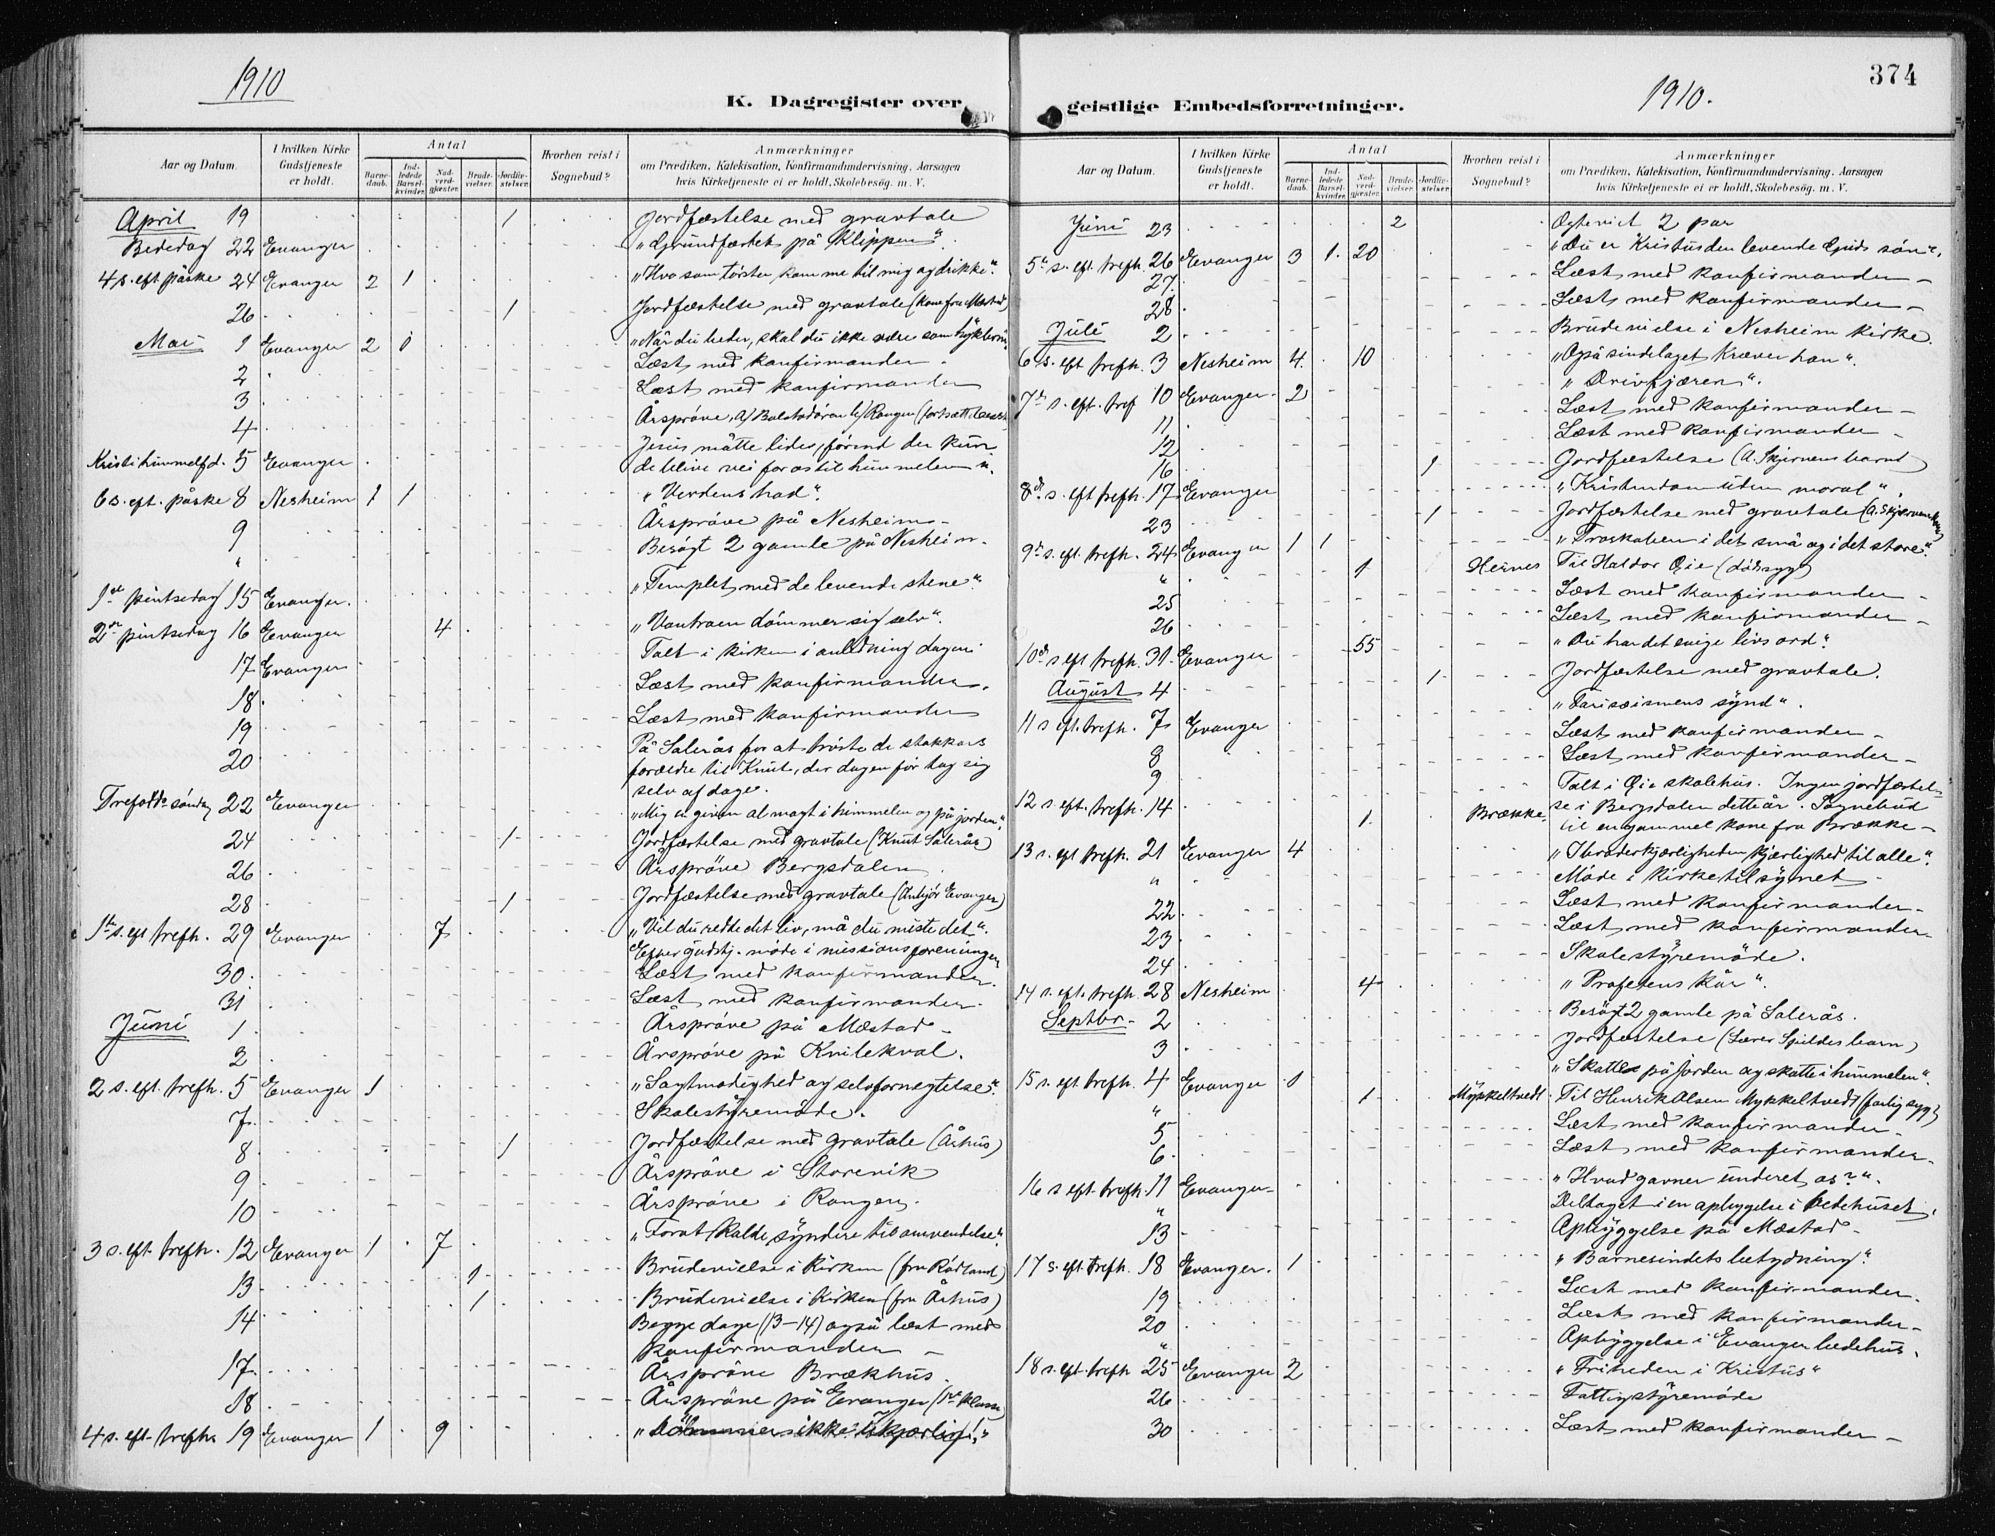 1910
K. Dagregister over
Aar og Datum.
I hvilken Kirke Gudstjeneste er holdt.
Antal
Barnedaab.
Indledede Barselkvinder.
Nadverdgjæster.
Brudevielser.
Jordfæstelser.
Hvorhen reist i Sognebud?
Anmærkninger
om Prædiken, Katekisation, Konfirmandundervisning, Aarsagen
hvis Kirketjeneste ei er holdt, Skolebesög. m. V.
April 19 1 Jordfæstelse med gravtale
Bededag 22 Evanger „Grundfæstet på Klippen“.
4 s. eft påske 24 Evanger 2 1 „Hvo som tørster, komme til mig og drikke“.
26 1 Jordfæstelse med gravtale (kone fra Mæstad)
Mai 1 Evanger 2 0 „Når du beder, skal du ikke være som
2 Læst med konfirmander
3 Læst med konfirmander
4 Årsprøve, a/ Bolstadøren b/ Rangen
Kristi himmelfd. 5 Evanger Jesus måtte lide, førend der kun-
de blive vei for os til himmelen“.
6 s. eft. påske 8 Nesheim 1 1 „Verdens had“.
9 Årsprøve på Nesheim
„ Besøgt 2 gamle på Nesheim
1ste pintsedag 15 Evanger. „Templet med de levende stene“
2den pintsedag 16 Evanger 4 „Vantroen dømmer sig selv“.
17 Evanger Talt i kirken i anledning dagen
18 Læst med konfirmander.
19 Læst med konfirmander
20 På Salerås for at trøste de stakkars
forældre til Knut, der dagen før tog sig
selv af dage.
Trefoldh. søndag 22 Evanger „Mig er given al magt i himmelen og på jorden“.
24 1 Jordfæstelse med gravtale (Knut Salerås)
26 Årsprøve Bergsdalen
28 1 Jordfæstelse med gravtale (Evanger)
1ste s. eft trefh. 29 Evanger 7 „Vil du redde dit liv, må du miste det“.
Efter gudstj. møde i missionsforeningen
30. Læst med konfirmander.
31 Læst med konfirmander.
Juni 1 Årsprøve på Mæstad
2 Årsprøve på Knilekval.
2 s. eft. trefh. 5 Evanger 1 „Sagtmodighed og selvfornegtelse“.
7 Skolestyremøde.
8 1 Jordfæstelse med gravtale (Århus)
9 Årsprøve i Storevik
10 Årsprøve i Rangen
3 s. eft. trefh. 12 Evanger 1 7 „For at kalde syndere til omvendelse“.
13 1 Brudevielse i kirken (fra Rødland)
14 1 Brudevielse i kirken (fra Århus)
Begge dage (13-14) også læst med
konfirmander
17 Årsprøve Brækhus.
18 Årsprøve på Evanger (1ste klasse)
4 s. eft. trefh. 19 Evanger 1 9
geistlige Embedsforretninger.
1910.
374
Aar og Datum.
I hvilken Kirke Gudstjeneste er holdt.
Antal
Barnedaab.
Indledede Barselkvinder.
Nadverdgjæster.
Brudevielser.
Jordfæstelser.
Hvorhen reist i Sognebud?
Anmærkninger
om Prædiken, Katekisation, Konfirmandundervisning, Aarsagen
hvis Kirketjeneste ei er holdt, Skolebesög. m. V.
Juni 23 2 2 par
5te s. eft. trefh. 26 Evanger 3 1 20 „Du er Kristus den levende Guds søn“.
27 Læst med konfirmander
28 Læst med konfirmander
Juli 2 Brudevielse i Nesheim kirke.
6 s. eft trefh. 3 Nesheim 4 10 „Også sindelaget kræver han“.
7de s. eft. tref 10 Evanger 2 „Drivfjæren“.
11 Læst med konfirmander
12 Læst med konfirmander
16 1 Jordfæstelse (A. Skjervens barn)
8de s. eft trefh. 17 Evanger „Kristendom uden moral“.
23 1 Jordfæstelse med gravtale
9de s. eft. trefh. 24 Evanger 1 1 „Troskaben i det små og i det store“.
„ 1 Hernes Til Haldor Øie (dødssyg)
25 Læst med konfirmander
26 Læst med konfirmander
10de s. eft trefh. 31 Evanger 55 „Du har det evige livs ord“.
August 4 1 Jordfæstelse med gravtale.
11 s. eft. trefh. 7 Evanger „Fariseismens synd“.
8 Læst med konfirmander
9 Læst med konfirmander
12 s. eft. trefh. 14 1 Brække. Talt i Øie skolehus. Ingen jordfæstel-
se i Bergsdalen dette år. Sognebud
til en gammel kone fra Brække
13 s. eft trefh. 21 Evanger 4 „I broderkjærligheden kjærlighed til alle“.
„ Møde i kirketilsynet
22 Læst med konfirmander
23 Læst med konfirmander
24 Skolestyremøde.
14 s. eft. trefh. 28 Nesheim 4 „Profetens kår“.
Septbr. 2 Besøgt 2 gamle på Salerås.
3 Jordfæstelse (Lærer Spildes barn)
15 s. eft trefh. 4 Evanger 0 „Skatte på jorden og skatte i himmelen“.
„ 1 Mykkeltvedt Til Henrik Olsen Mykkeltvedt (farlig syg)
5 Læst med konfirmander
6 Læst med konfirmander
16 s. eft. trefh. 11 Evanger „Hvad gavner underet os?“.
„ Deltaget i en opbyggelse i bedehuset.
13 Opbyggelse på Mæstad
17 s. eft. trefh. 18 Evanger. 1 „Barnesindets betydning“.
19 Læst med konfirmander.
20 Læst med konfirmander
„ Opbyggelse i Evanger bedehus.
18 s. eft trefh 25 Evanger 2 „Friheden i Kristus“
26 Fattigstyremøde
30 Læst med konfirmander